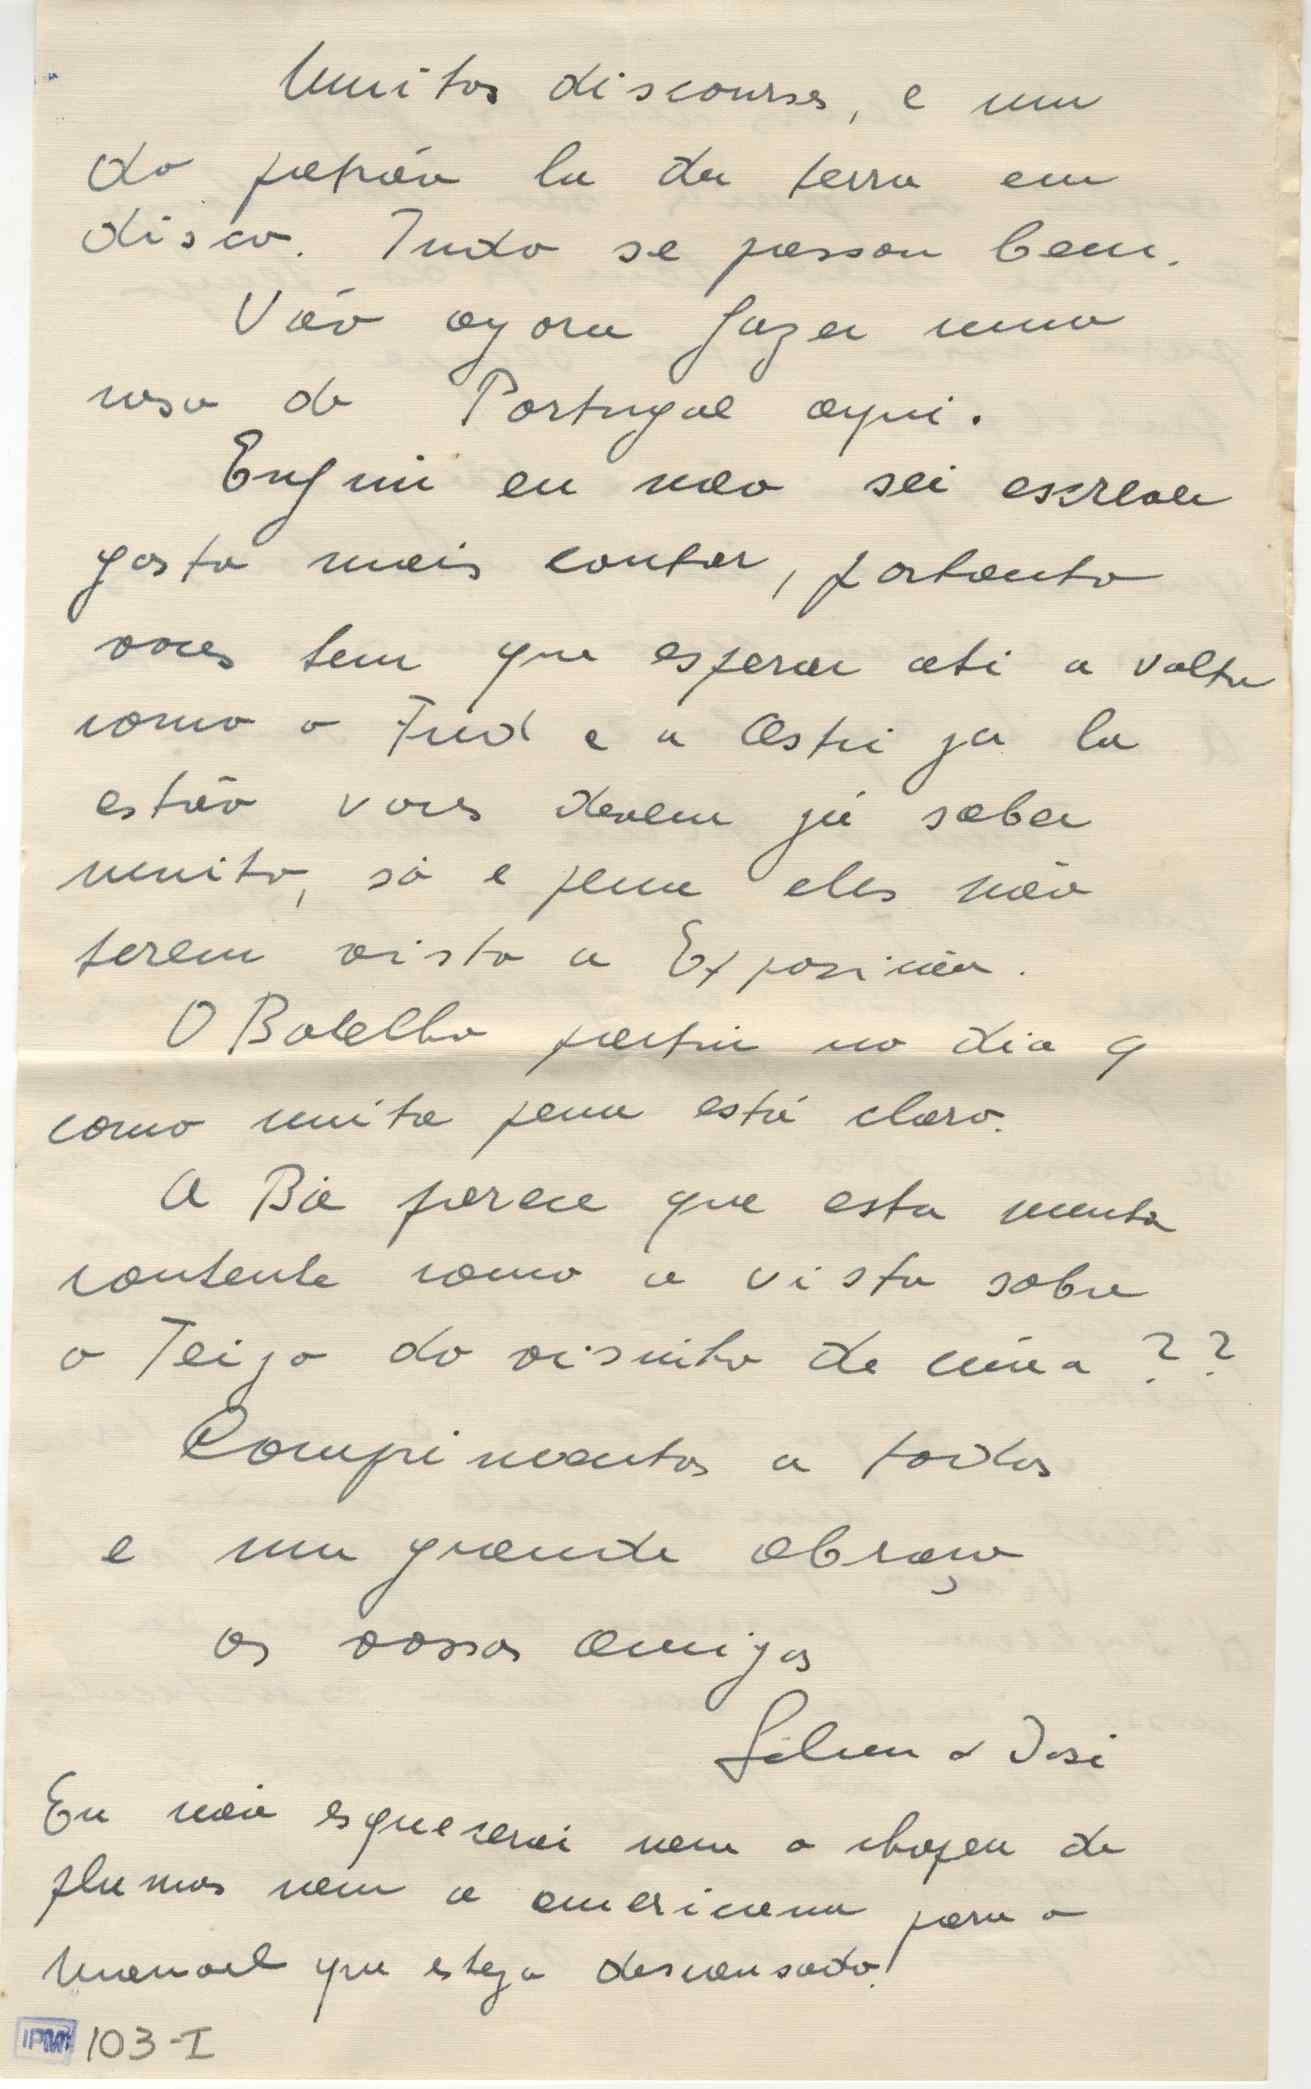 Muitos discourses, e um
do patrão la da terra em
disco. Tudo se passou bem.
Vão agora fazer uma
rosa de Portugal aqui.
Enfim eu não sei escrever
gosto mais contar, portanto
voces tem que esperar até a volta
como o Fred e a Astri ja la
estão voces devem já saber
muito, só e pena eles não
terem visto a Exposicão.
O Botelho partiu no dia 9
como muita pena está claro.
A Bia parece que esta munta
contente como a vista sobre
o Teijo do visinho de cima ??
Comprimentos a todos
e um grande abraço
os vossos amigos
& José
Eu não esquecerei nem o chapeu de
plumas nem a americana para o
Manoel que esteja descansado!
103-I